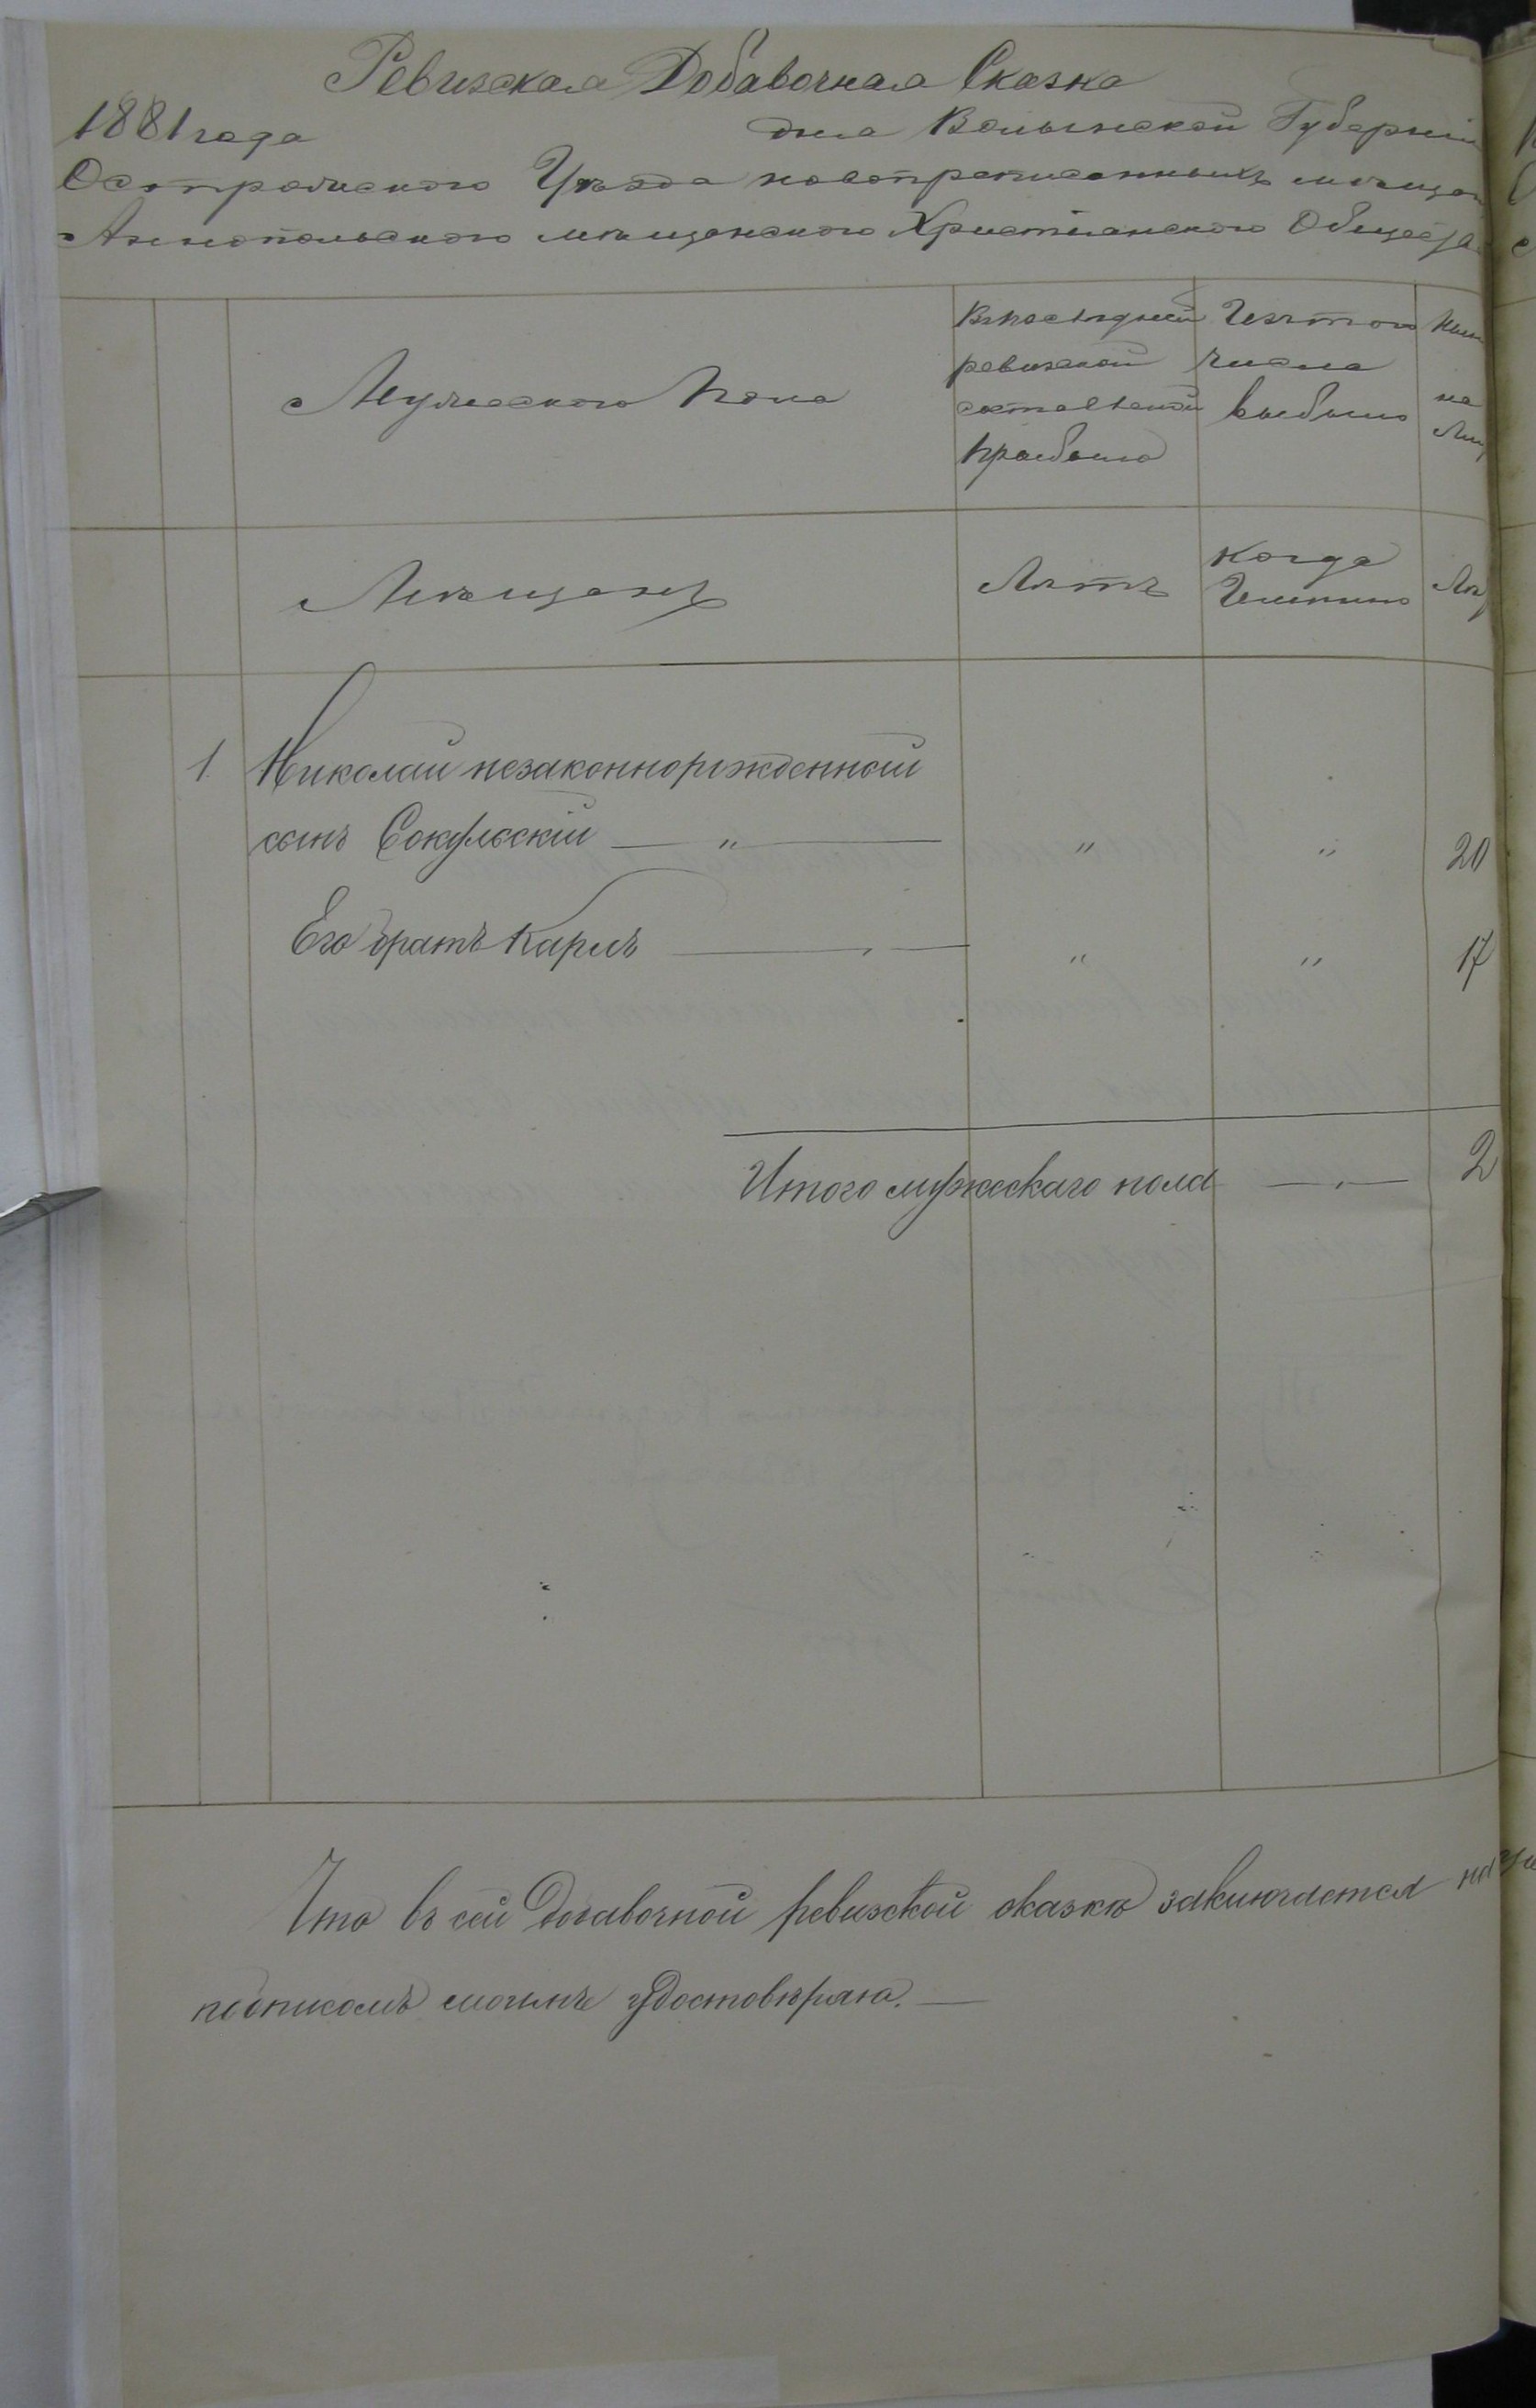 Ревизская Добавочная Сказка
1881 года дня Волынской Губерніи
Острожского Уѣзда новопреписанныхъ мѣщан
Аннопольского мѣщанского Христіанского Общества
Мужеского Пола
Впослѣдней ревизской состав прибыло
Изътого числа выбыло
на
Мѣщанъ
Лѣтъ
когда Именно
1. Николай незаконнорожденной
сынъ Сокульскій — „ — „ „ 20
Его братъ Карлъ — „ „ 17
Итого мужескаго пола — 2
Что въ сей добавочной ревизской сказкѣ заключается
подписомъ моимъ удостовѣряю. —